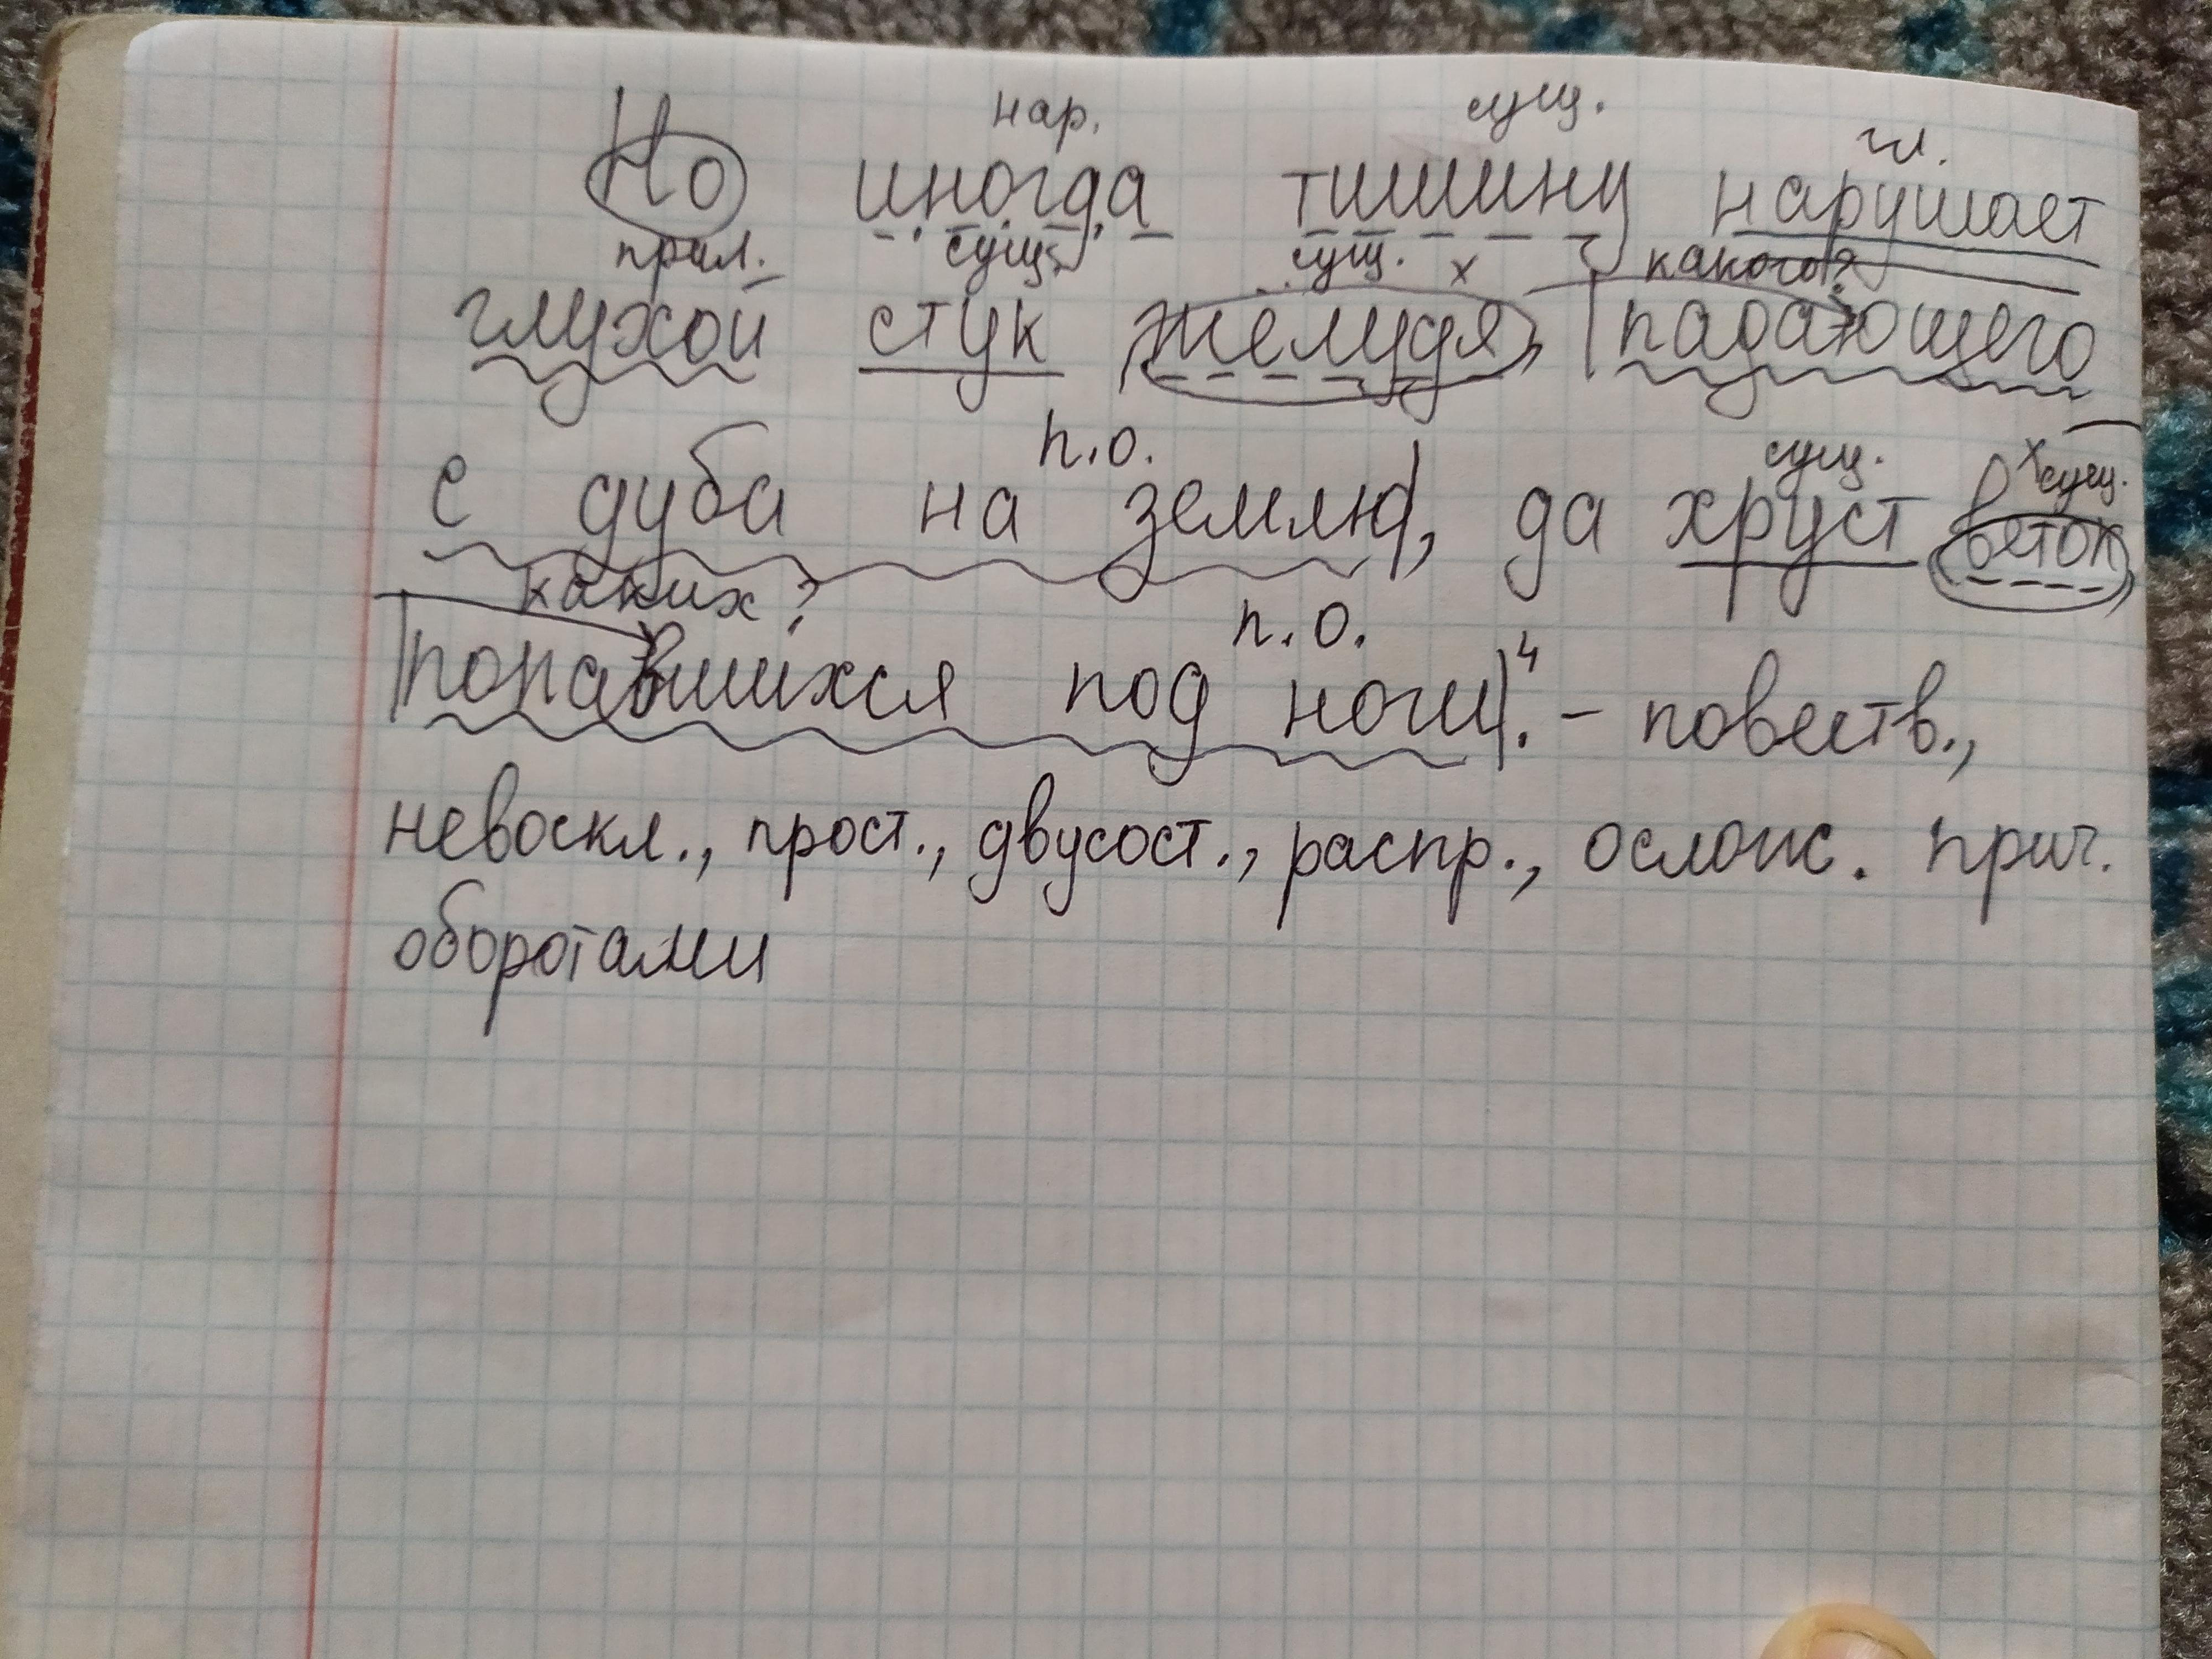 нар. сущ. гл.
Но иногда тишину нарушает
прил. сущ. сущ. х какого?
глухой стук желудя, |падающего
п.о. сущ. х сущ.
с дуба на землю|, да хруст веток,
каких? п.о.
|попавшихся под ноги|.⁴ – повеств.,
невоскл., прост., двусост., распр., ослож. прич.
оборотами